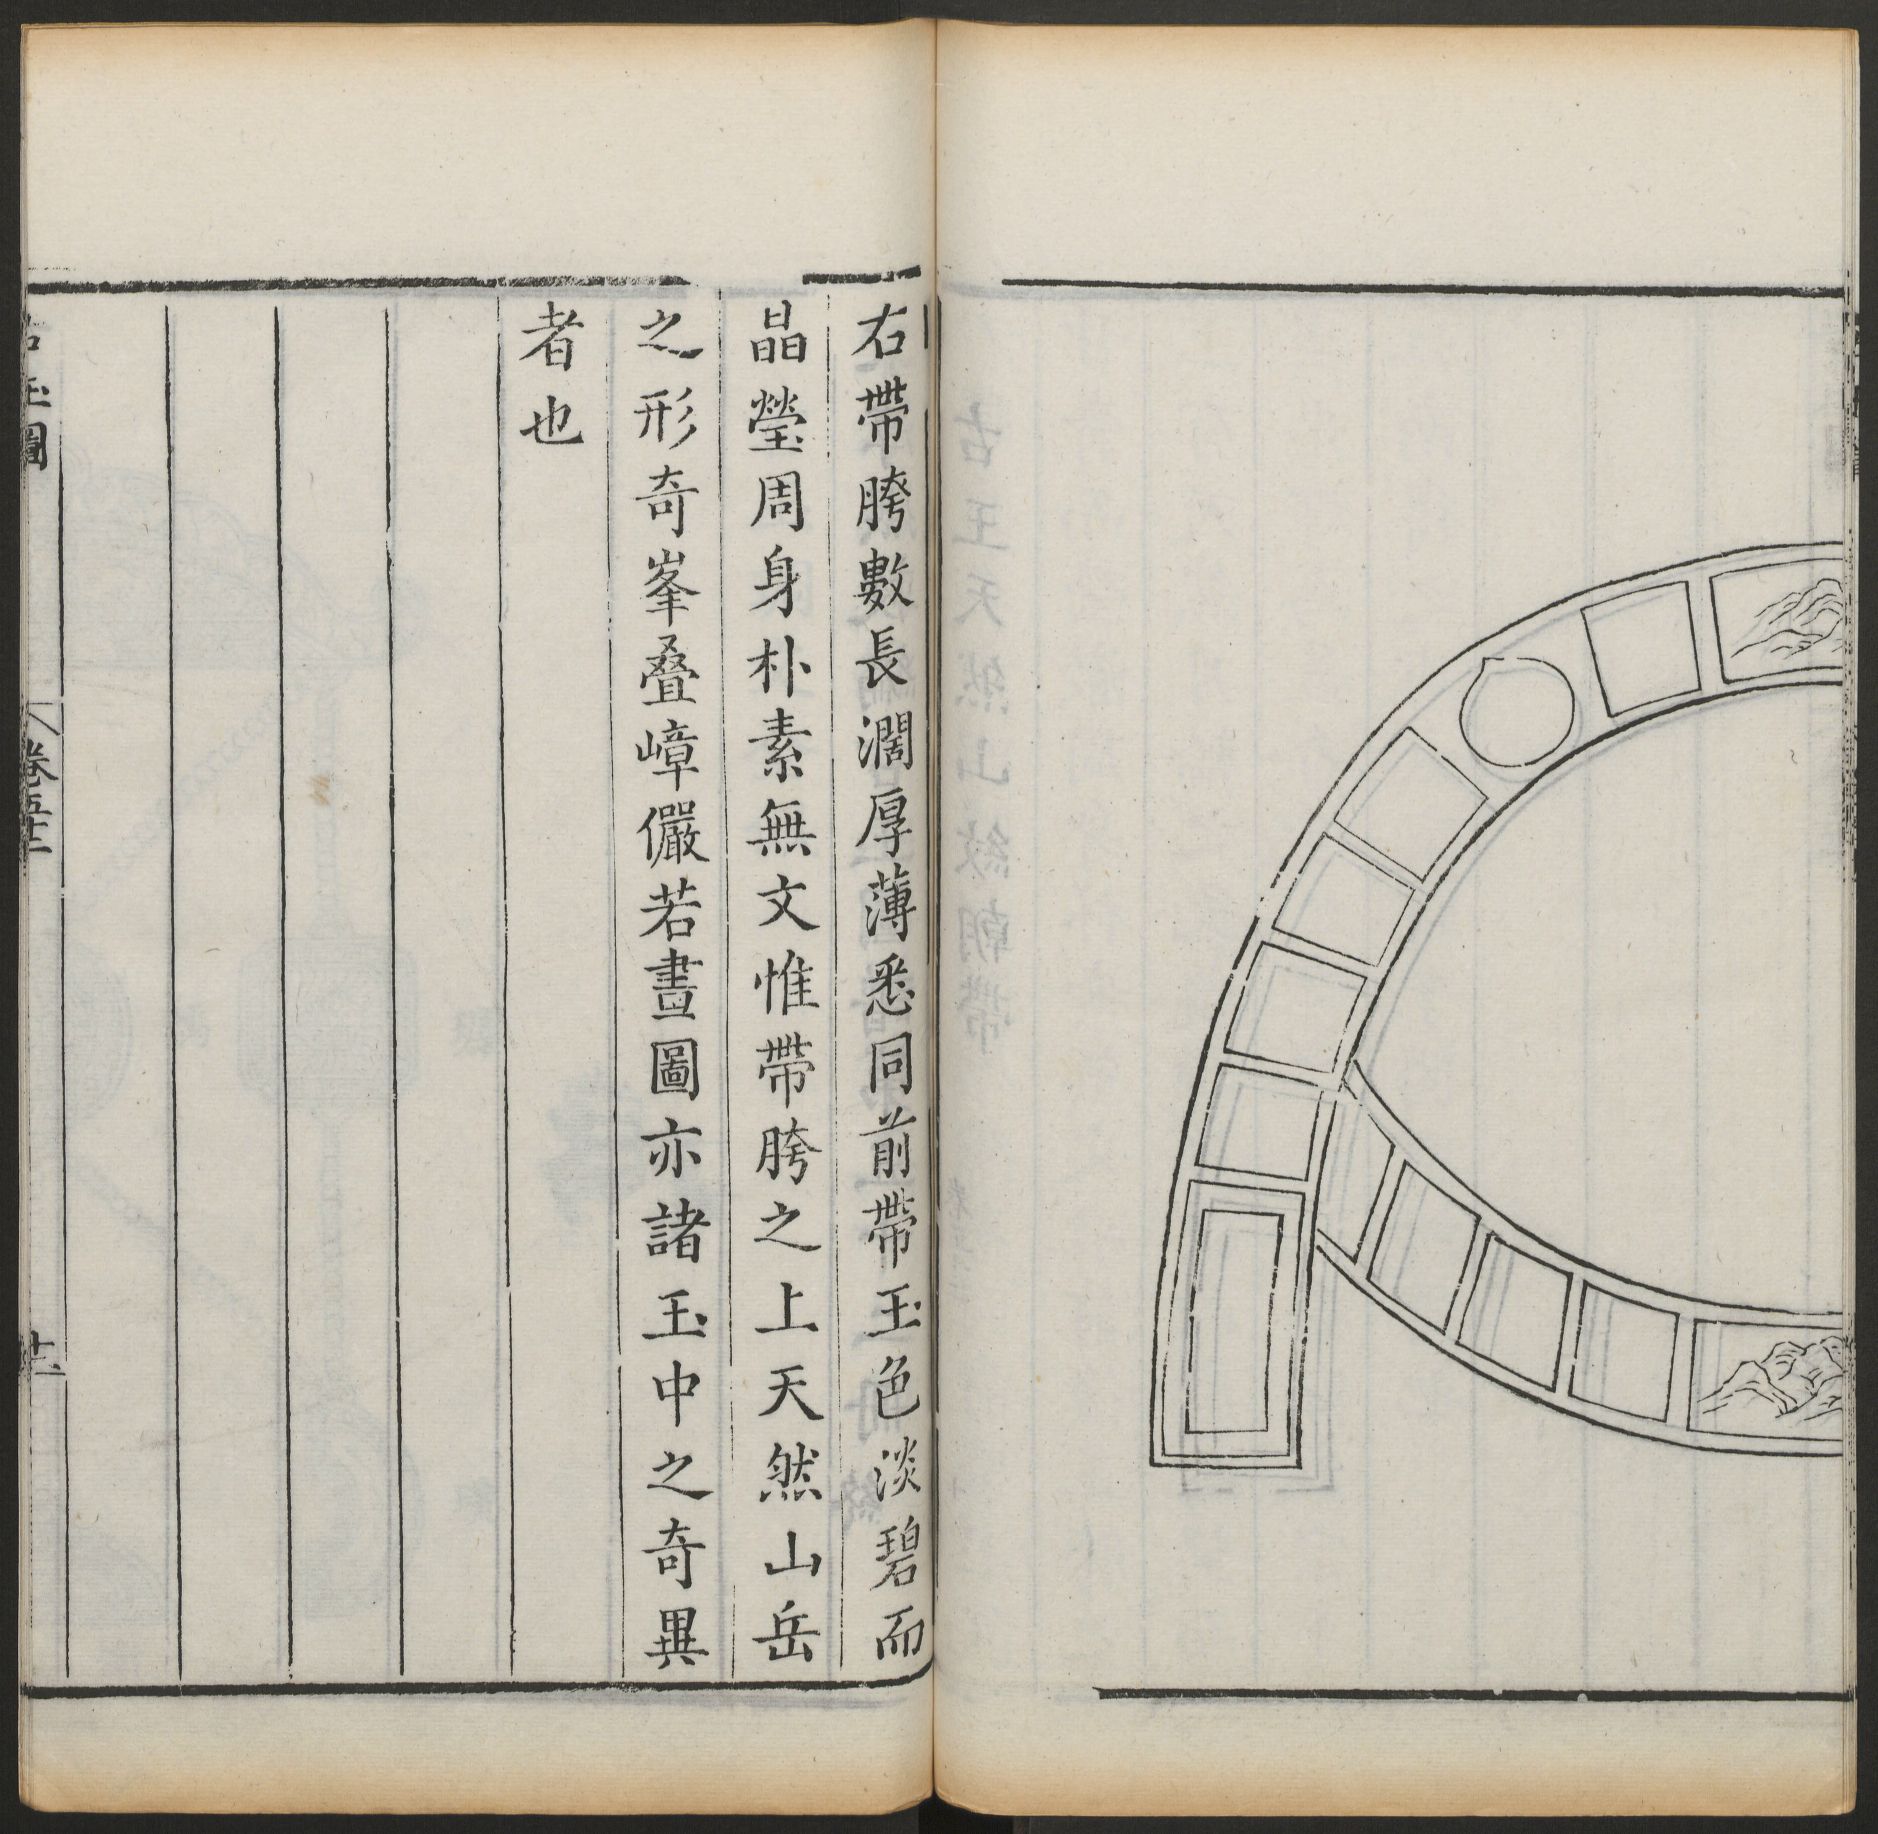 右帶胯數長濶厚薄悉同前帶玉色淡碧而
晶瑩周身朴素無文惟帶胯之上天然山岳
之形奇峯疊嶂儼若畫圖亦諸玉中之奇異
者也
古玉圖
卷五十二